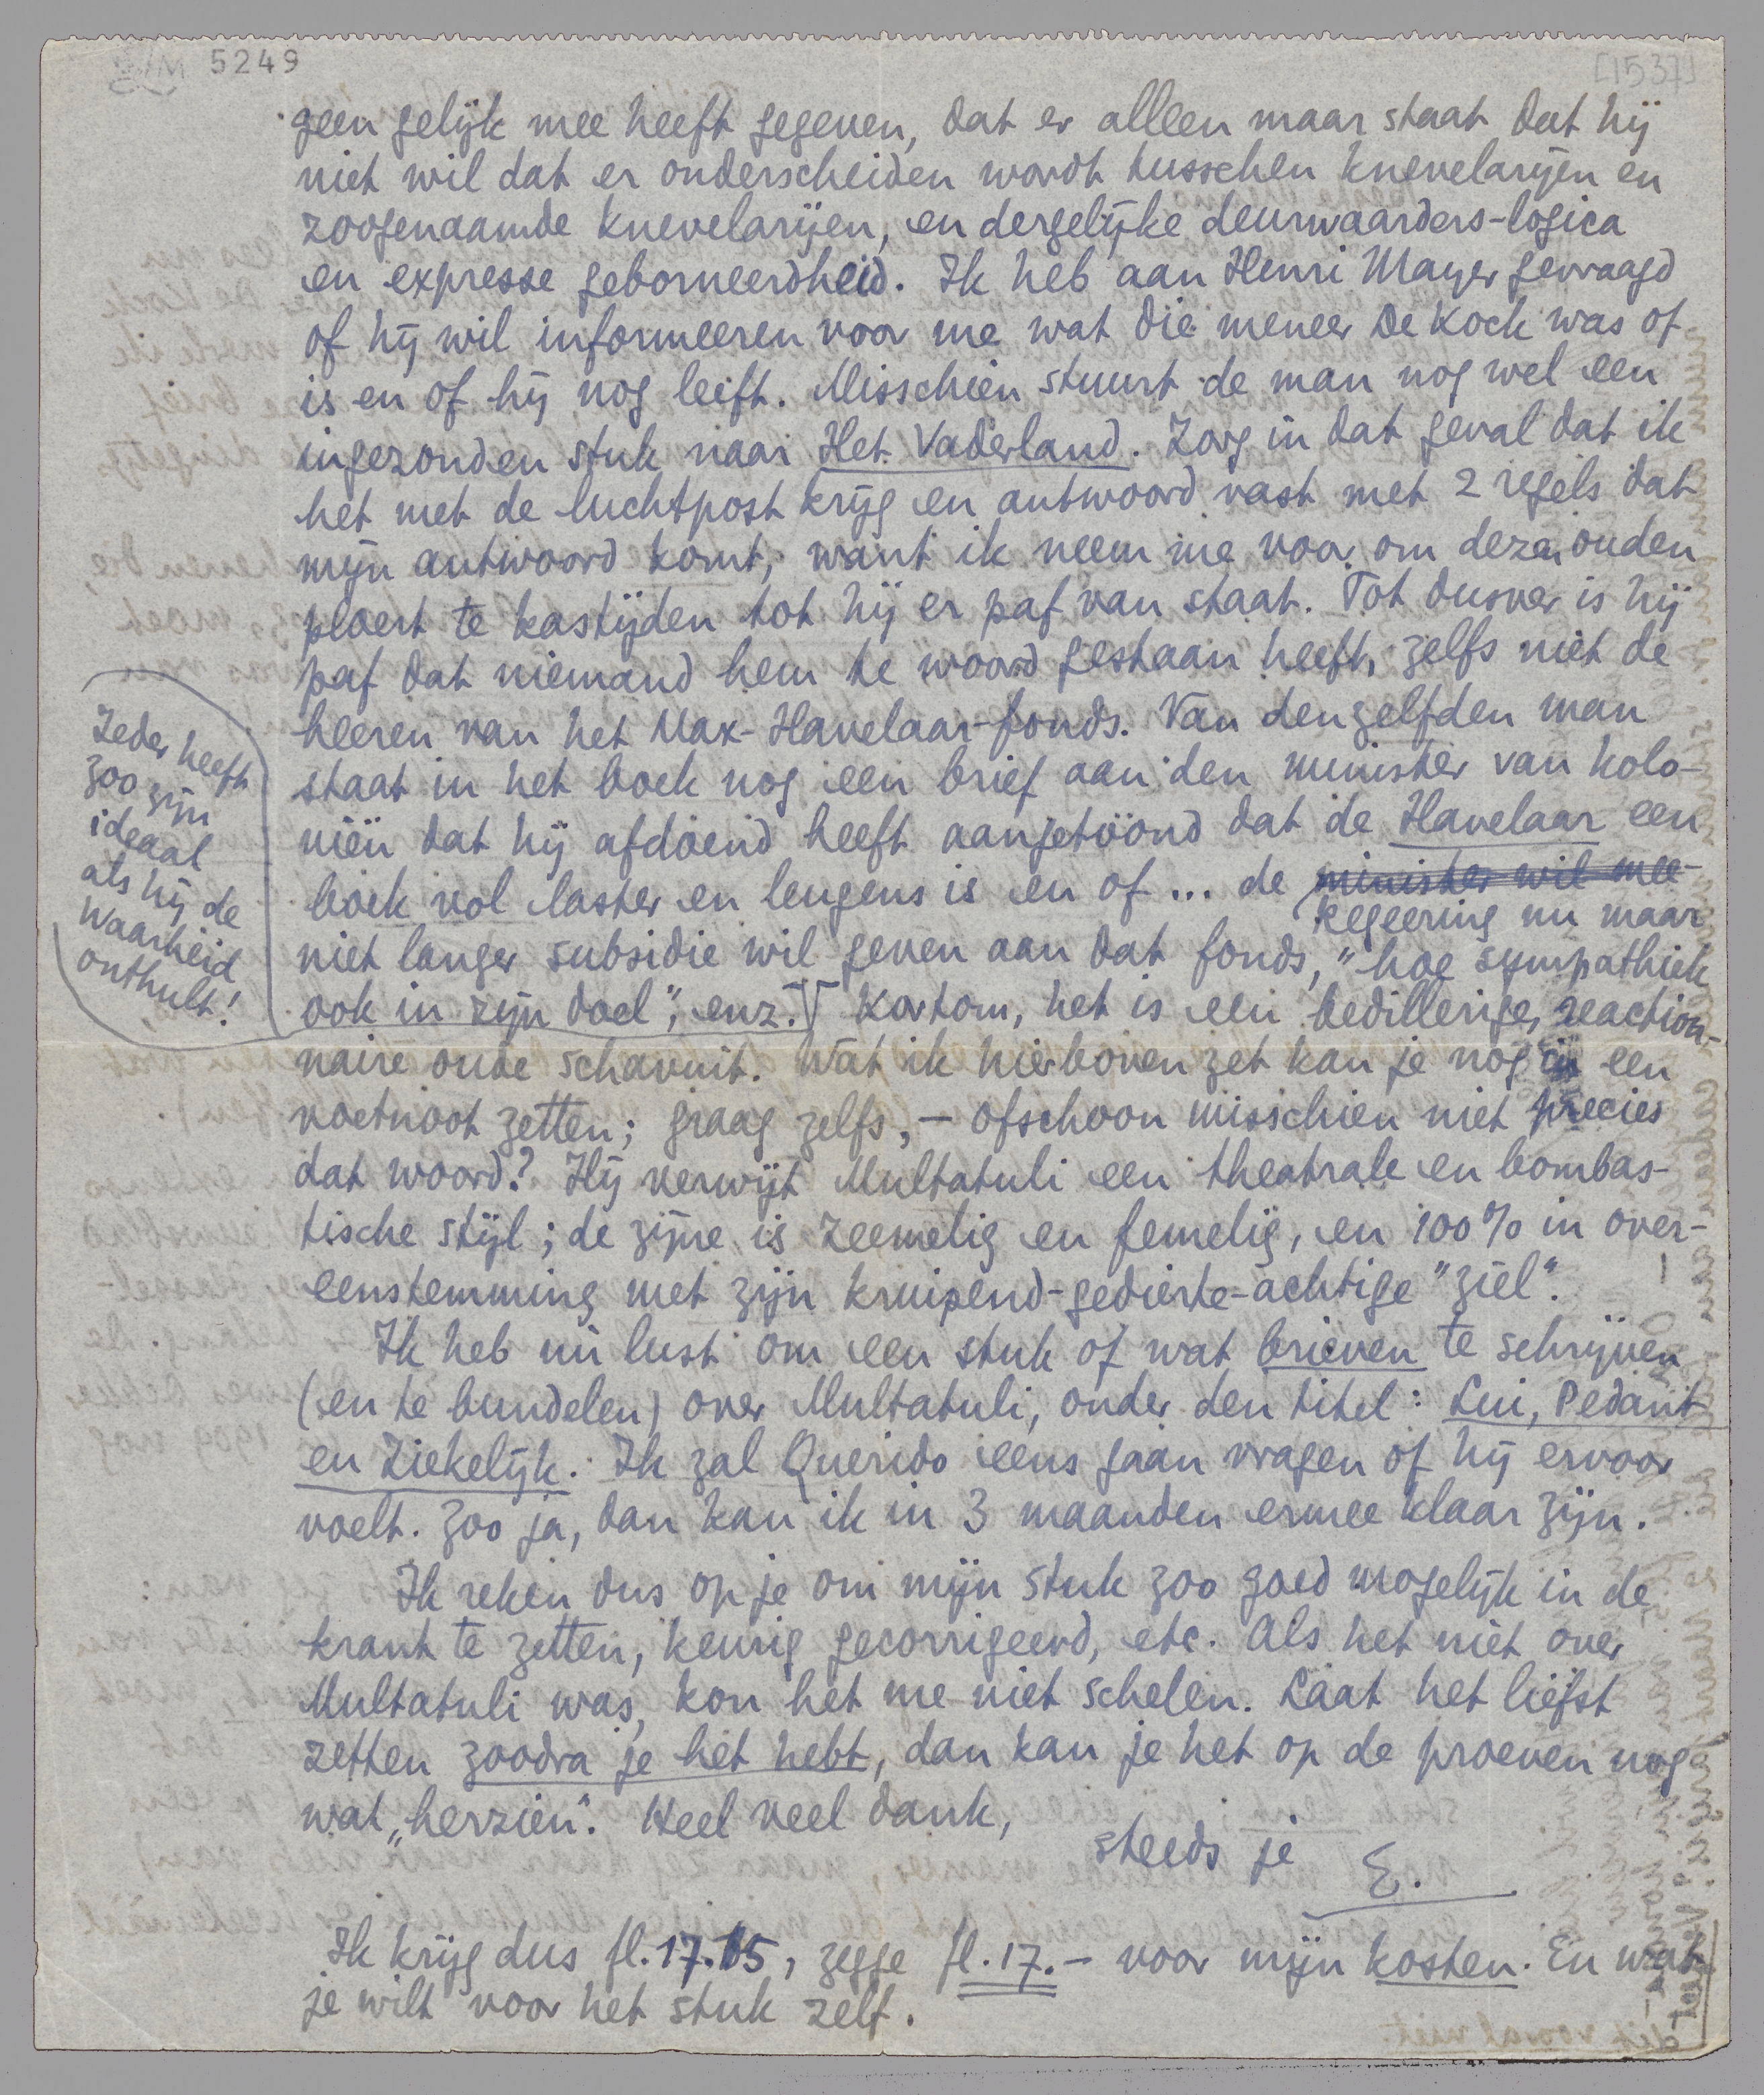 5249
[1537]
geen gelijk mee heeft gegeven, dat er alleen maar staat dat hij
niet wil dat er onderscheiden wordt tusschen knevelarijen en
zoogenaamde knevelarijen, en dergelijke deurwaarders-logica
en expresse geborneerdheid. Ik heb aan Henri Mayer gevraagd
of hij wil informeeren voor me wat die meneer De Kock was of
is en of hij nog leeft. Misschien stuurt de man nog wel een
ingezonden stuk naar Het Vaderland. Zorg in dat geval dat ik
het met de luchtpost krijg en antwoord vast met 2 regels dat
mijn antwoord komt; want ik neem me voor om dezen ouden
ploert te kastijden tot hij er paf van staat. Tot dusver is hij
paf dat niemand hem te woord gestaan heeft, zelfs niet de
heeren van het Max-Havelaar-fonds. Van denzelfden man
staat in het boek nog een brief aan den minister van kolo-
niën dat hij afdoend heeft aangetoond dat de Havelaar een
boek vol laster en leugens is en of ... de minister wil mee-
regeering nu maar
niet langer subsidie wil geven aan dat fonds, "hoe sympathiek
ook in zijn doel", enz. Kortom, het is een bedillerige, reaction-
naire oude schavuit. Wat ik hierboven zet kan je nog in een
voetnoot zetten; graag zelfs, – ofschoon misschien niet precies
dat woord? Hij verwijt Multatuli een theatrale en bombas-
tische stijl; de zijne is zeemelig en femelig, en 100% in over-
eenstemming met zijn kruipend-gedierte-achtige "ziel".
Ik heb nu lust om een stuk of wat brieven te schrijven
(en te bundelen) over Multatuli, onder den titel: Lui, Pedant
en Ziekelijk. Ik zal Querido eens gaan vragen of hij ervoor
voelt. Zoo ja, dan kan ik in 3 maanden ermee klaar zijn.
Ik reken dus op je om mijn stuk zoo goed mogelijk in de
krant te zetten, keurig gecorrigeerd, etc. Als het niet over
Multatuli was, kon het me niet schelen. Laat het liefst
zetten zoodra je het hebt, dan kan je het op de proeven nog
wat „herzien". Heel veel dank,
steeds je
E.
Ik krijg dus fl. 17.15, zegge fl. 17.– voor mijn kosten. En wat
je wilt voor het stuk zelf.
Ieder heeft
zoo zijn
ideaal
als hij de
waarheid
onthult!